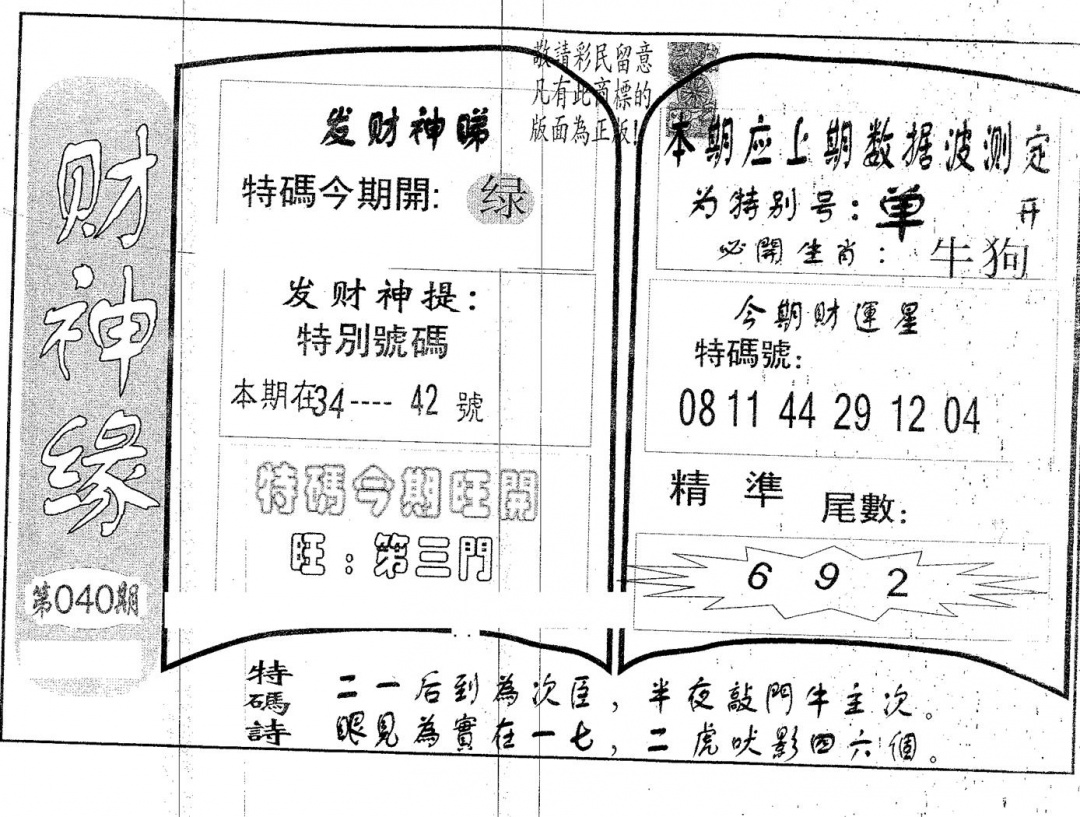 财神缘
第040期
敬請彩民留意
凡有此商標的
版面為正版!
发财神睇
特碼今期開: 绿
发财神提:
特別號碼
本期在34---- 42 號
特碼今期旺開
旺: 第三門
本期应上期数据波测定
为特别号: 单 开
必開生肖: 牛狗
今期财運星
特碼號:
08 11 44 29 12 04
精 準 尾數:
6 9 2
特碼詩
二一后到為次臣, 半夜敲門牛主次。
眼見為實在一七, 二虎吠影四六個。